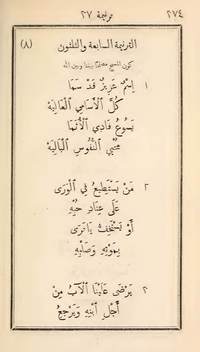 ٢٧٤ ترنيمة ٢٧
الترنيمة السابعة والثلثون (٨)
كون المسيح مصلحًا بيننا وبين الله
١ اِسْمٌ عَزِيزٌ قَدْ سَمَا
كُلَّ ٱلْأَسَامِي ٱلْغَالِيَة
يَسُوعُ فَادِي ٱلْأُمَمَا
مُنْجِي ٱلنُّفُوسِ ٱلْبَالِيَة
٢ مَنْ يَسْتَطِيعُ فِي ٱلْوَرَى
عَلَى عِنَادِ حُبِّهِ
أَوْ يَسْتَخِفُّ يَا تَرَى
بِمَوْتِهِ وَصَلْبِهِ
٣ يَرْضَى عَلَيْنَا ٱلْآبُ مِنْ
أَجْلِ ٱبْنِهِ وَيَرْجِعُ